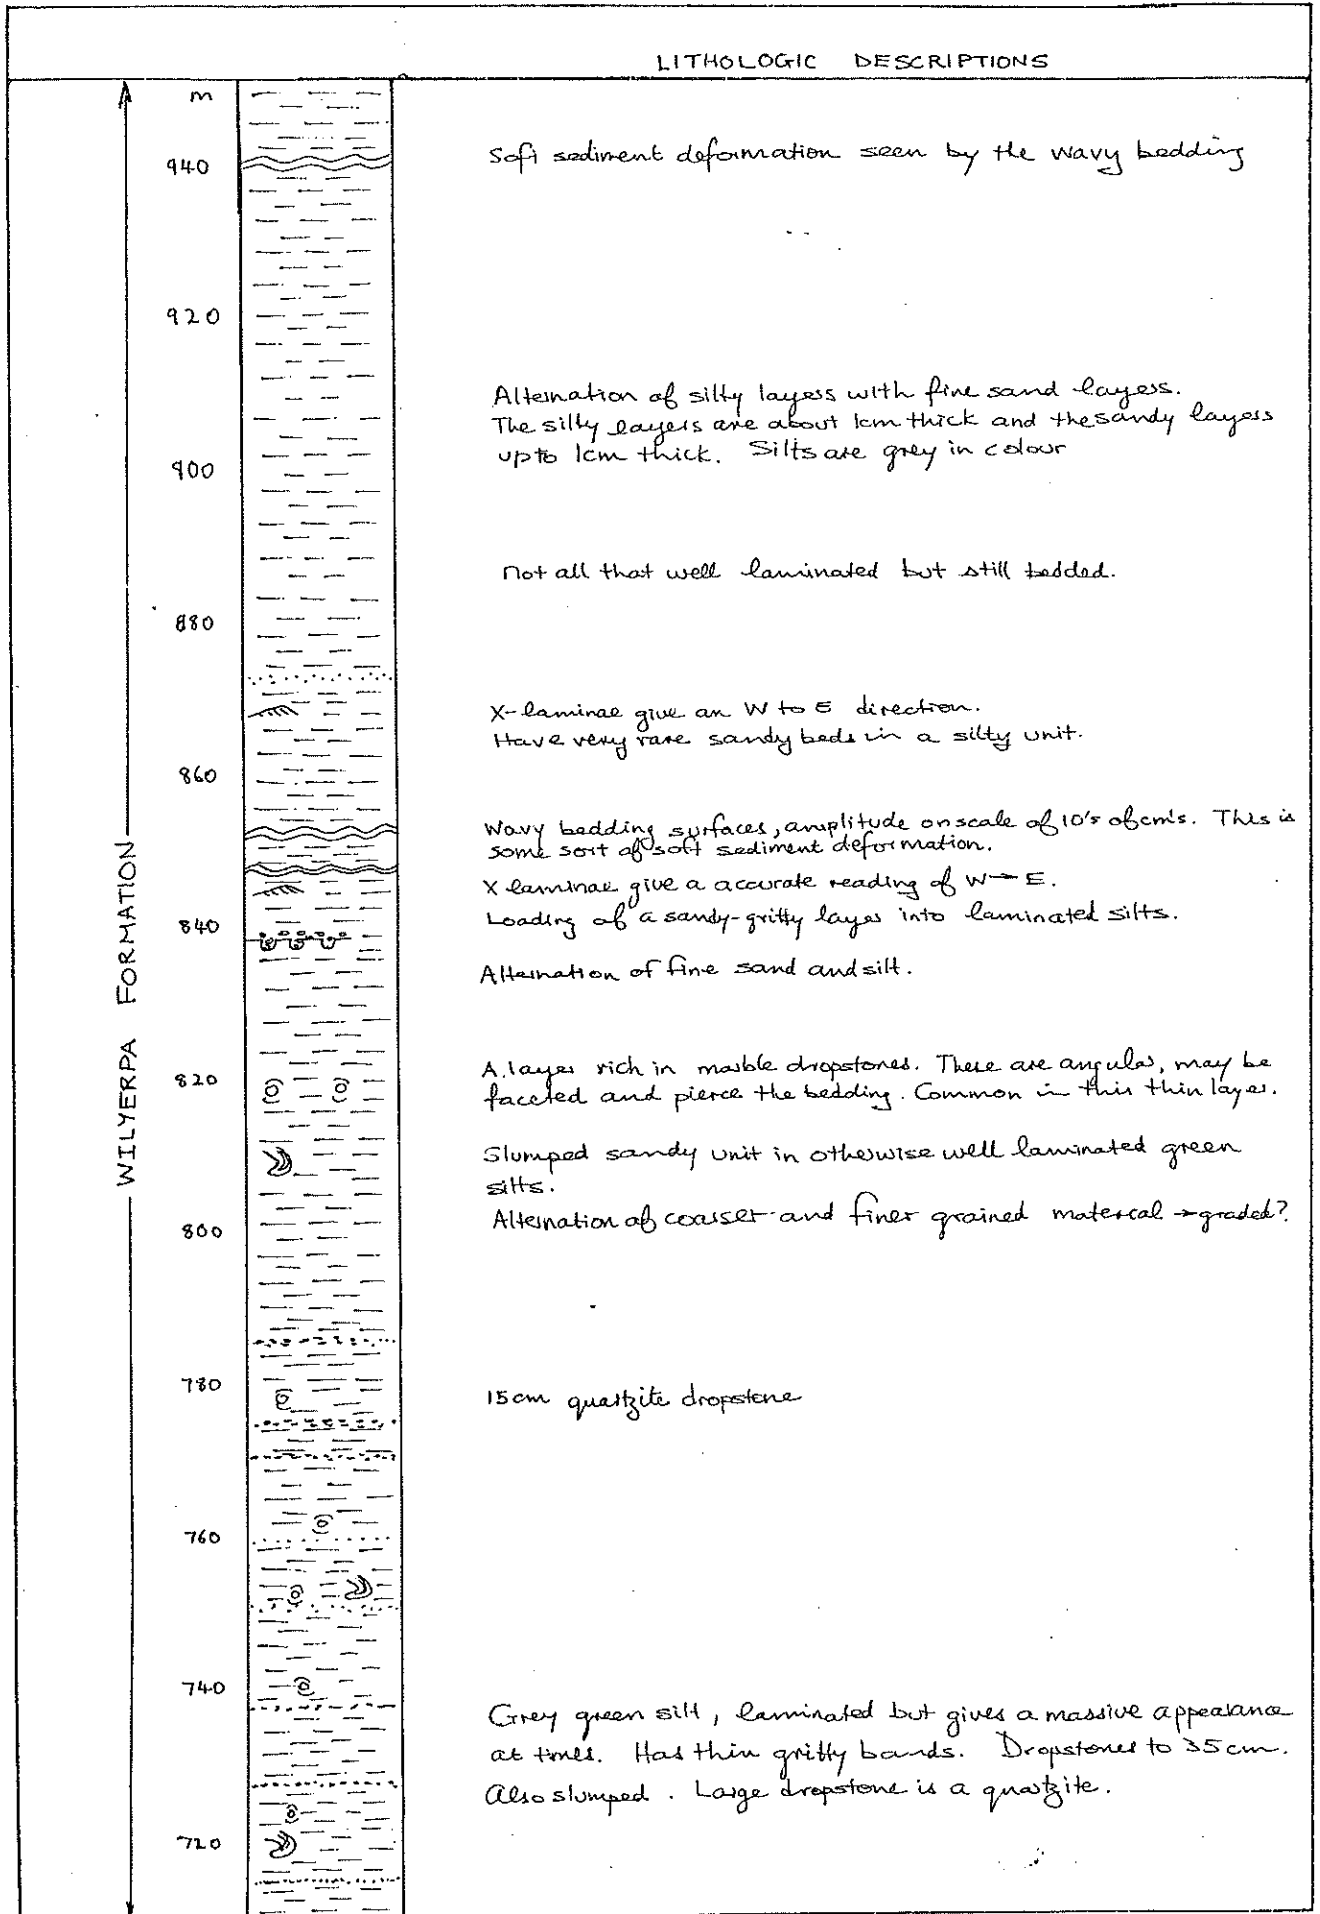 LITHOLOGIC DESCRIPTIONS
m
940
Soft sediment deformation seen by the wavy bedding
920
Alternation of silty layers with fine sand layers.
The silty layers are about 1cm thick and the sandy layers
up to 1cm thick. Silts are grey in colour
900
Not all that well laminated but still bedded.
880
X-laminae give an W to E direction.
Have very rare sandy beds in a silty unit.
860
Wavy bedding surfaces, amplitude on scale of 10's of cm's. This is
some sort of soft sediment deformation.
X laminae give a accurate reading of W → E.
Loading of a sandy-gritty layer into laminated silts.
840
Alternation of fine sand and silt.
WILYERPA FORMATION
820
A layer rich in marble dropstones. These are angular, may be
faceted and pierce the bedding. Common in this thin layer.
Slumped sandy unit in otherwise well laminated green
silts.
Alternation of coarser and finer grained material → graded?
800
780
15cm quartzite dropstone
760
740
Grey green silt, laminated but gives a massive appearance
at times. Has thin gritty bands. Dropstones to 35cm.
Also slumped. Large dropstone is a quartzite.
720